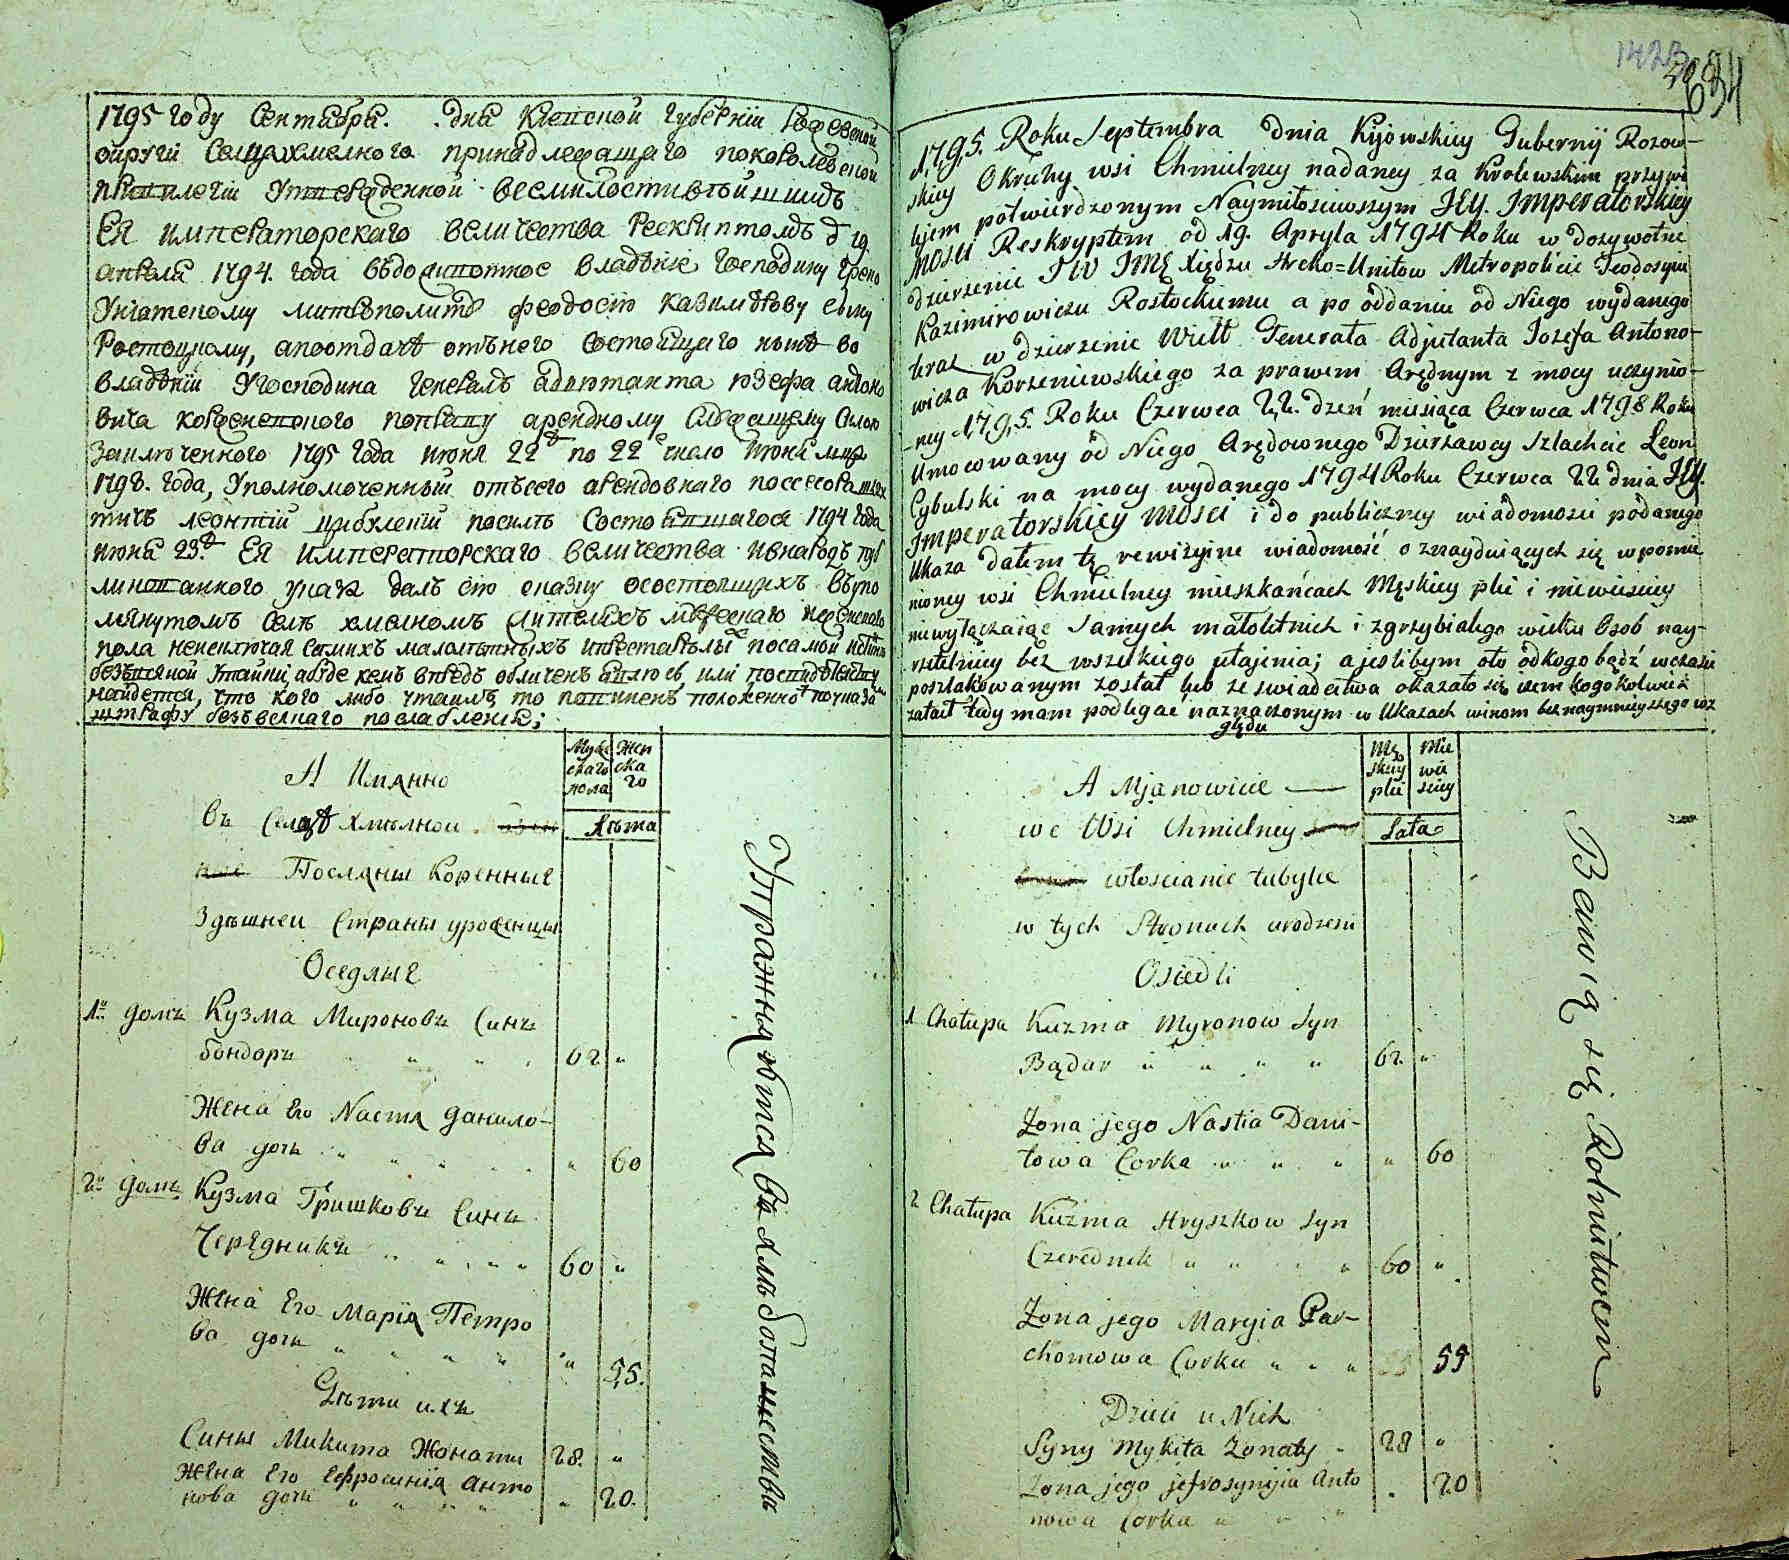 1795 году Сентября . . дня Киевской губернии
округи села Хмелного принадлежащего по королевской
привилегии утвержденной Всемилостивейшимъ
Ея Императорскаго Величества Рескриптомъ 19
апреля 1794. года въ владение господину Греко
Униатскому митрополиту Феодосию Казимирову сыну
Ростоцкому, а по отдаче отъ него состоящаго ныне во
владении у господина генералъ адъютанта Иозефа Антоно
вича по праву арендному
заключенного 1795 года июня 22 по 22 число июня
1798. года, уполномоченный отъ сего арендовнаго поссесора
Леонтий Цибулский по силе состоявшагося 1794 года
июня 23. Ея Императорскаго Величества и в народъ
указа далъ сию сказку о состоящихъ въ упо
мянутомъ селе Хмелномъ жителяхъ мужескаго и женскаго
пола не исключая самихъ малолетныхъ и престарелыхъ по самой
безъ всякой утайки,
найдется, что кого либо утаилъ то повиненъ положенно
штрафу безъ всякаго послабления;
А Иманно
Муже
скаго
пола
Жен
ска
го
въ Селе Хмелной
Лета
Посляны Коренные
Здешнеи Страны уроженцы
Оседлые
1й домъ Кузма Мироновъ Синъ
бондаръ " " " 62 "
Жена Его Настя Данило-
ва дочь " " " " 60
2й домъ Кузма Гришковъ Синъ
Чередникъ " " " " 60 "
Жена Его Мария Петро
ва дочь " " " " " 55.
Дети ихъ
Сины Микита Жонати 28. "
Жена Его Ефросиния Анто
нова дочь " " " " " 20.
Упражняются въ хлебопашестви
1423
634
1795. Roku Septembra dnia Kijowskiey Gubernij Rozow-
skiey Okruhy wsi Chmielney nadaney za Krolewskim przywi
lejem potwierdzonym Naymiłościwszym Jey. Imperatorskiey
Mosci Reskryptem od 19. Apryla 1794 Roku w dozywotne
dzierzenie JW JMę Xiędzu Hreko=Unitow Metropolicie Teodosyui
Kazimirowiczu Rostockiemu a po oddaniu od Niego wydanego
teraz w dzierzenie Wielt Generała Adjutanta Jozefa Antono-
wicza Korzeniewskiego za prawem Arędnym z mocy uczynio-
ney 1795. Roku Czerwca 22. dzeń miesiąca Czerwca 1798 Roku
Umocowany od Niego Arędownego Dzierżawcy Szlachcic Leon
Cybulski na mocy wydanego 1794 Roku Czerwca 22 dnia Jey.
Imperatorskiey Mosci i do publiczney wiadomosci podanego
Ukaza dałem tę rewizyine wiadomość o znayduiących się w pomie
nioney wsi Chmielney mieszkańcach Męskiey płci i niewiesciey
niewyłączaiąc samych małoletnich i zgrzybiałego wieku Osob nay-
rzetelniey bez wszelkiego utajenia; a jeslibym oto od kogo bądź w czasie
poszlakowanym został lub ze swiadectwa okazało się iżem kogokolwiek
zataił tedy mam podlegać naznaczonym w Ukazach winom bez naymnieyszego wz
ględu
A Mjanowicie
Mę
skiey
płci
Nie
wie
sciey
we Wsi Chmielney
Lata
włoscianie tubylce
w tych Stronach urodzeni
Osiedli
1 Chałupa Kuzma Myronow Syn
Bądar " " " " 62. "
Zona jego Nastia Dani-
łowa Corka " " " " 60
2 Chałupa Kuzma Hryszkow Syn
Czerednik " " " " 60 "
Zona jego Maryia Par-
chomowa Corka " " " 55
Dzieci u Nich
Syny Mykita Zonaty 28 "
Zona jego Jefrosynyia Anto 20
nowa Corka " " "
Bawią się Rolnictwem